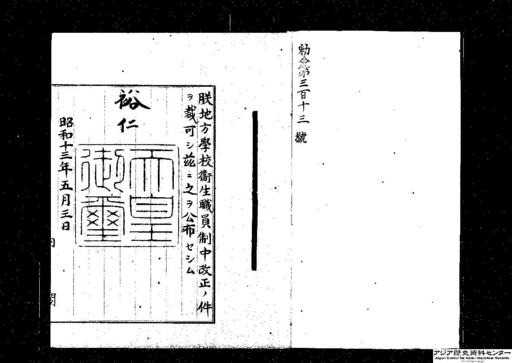 勅令第三百十三號
朕地方學校衞生職員制中改正ノ件
ヲ裁可シ茲ニ之ヲ公布セシム
裕仁
天皇
御璽
昭和十三年五月三日
内閣
アジア歴史資料センター
Japan Center for Asian Historical Records